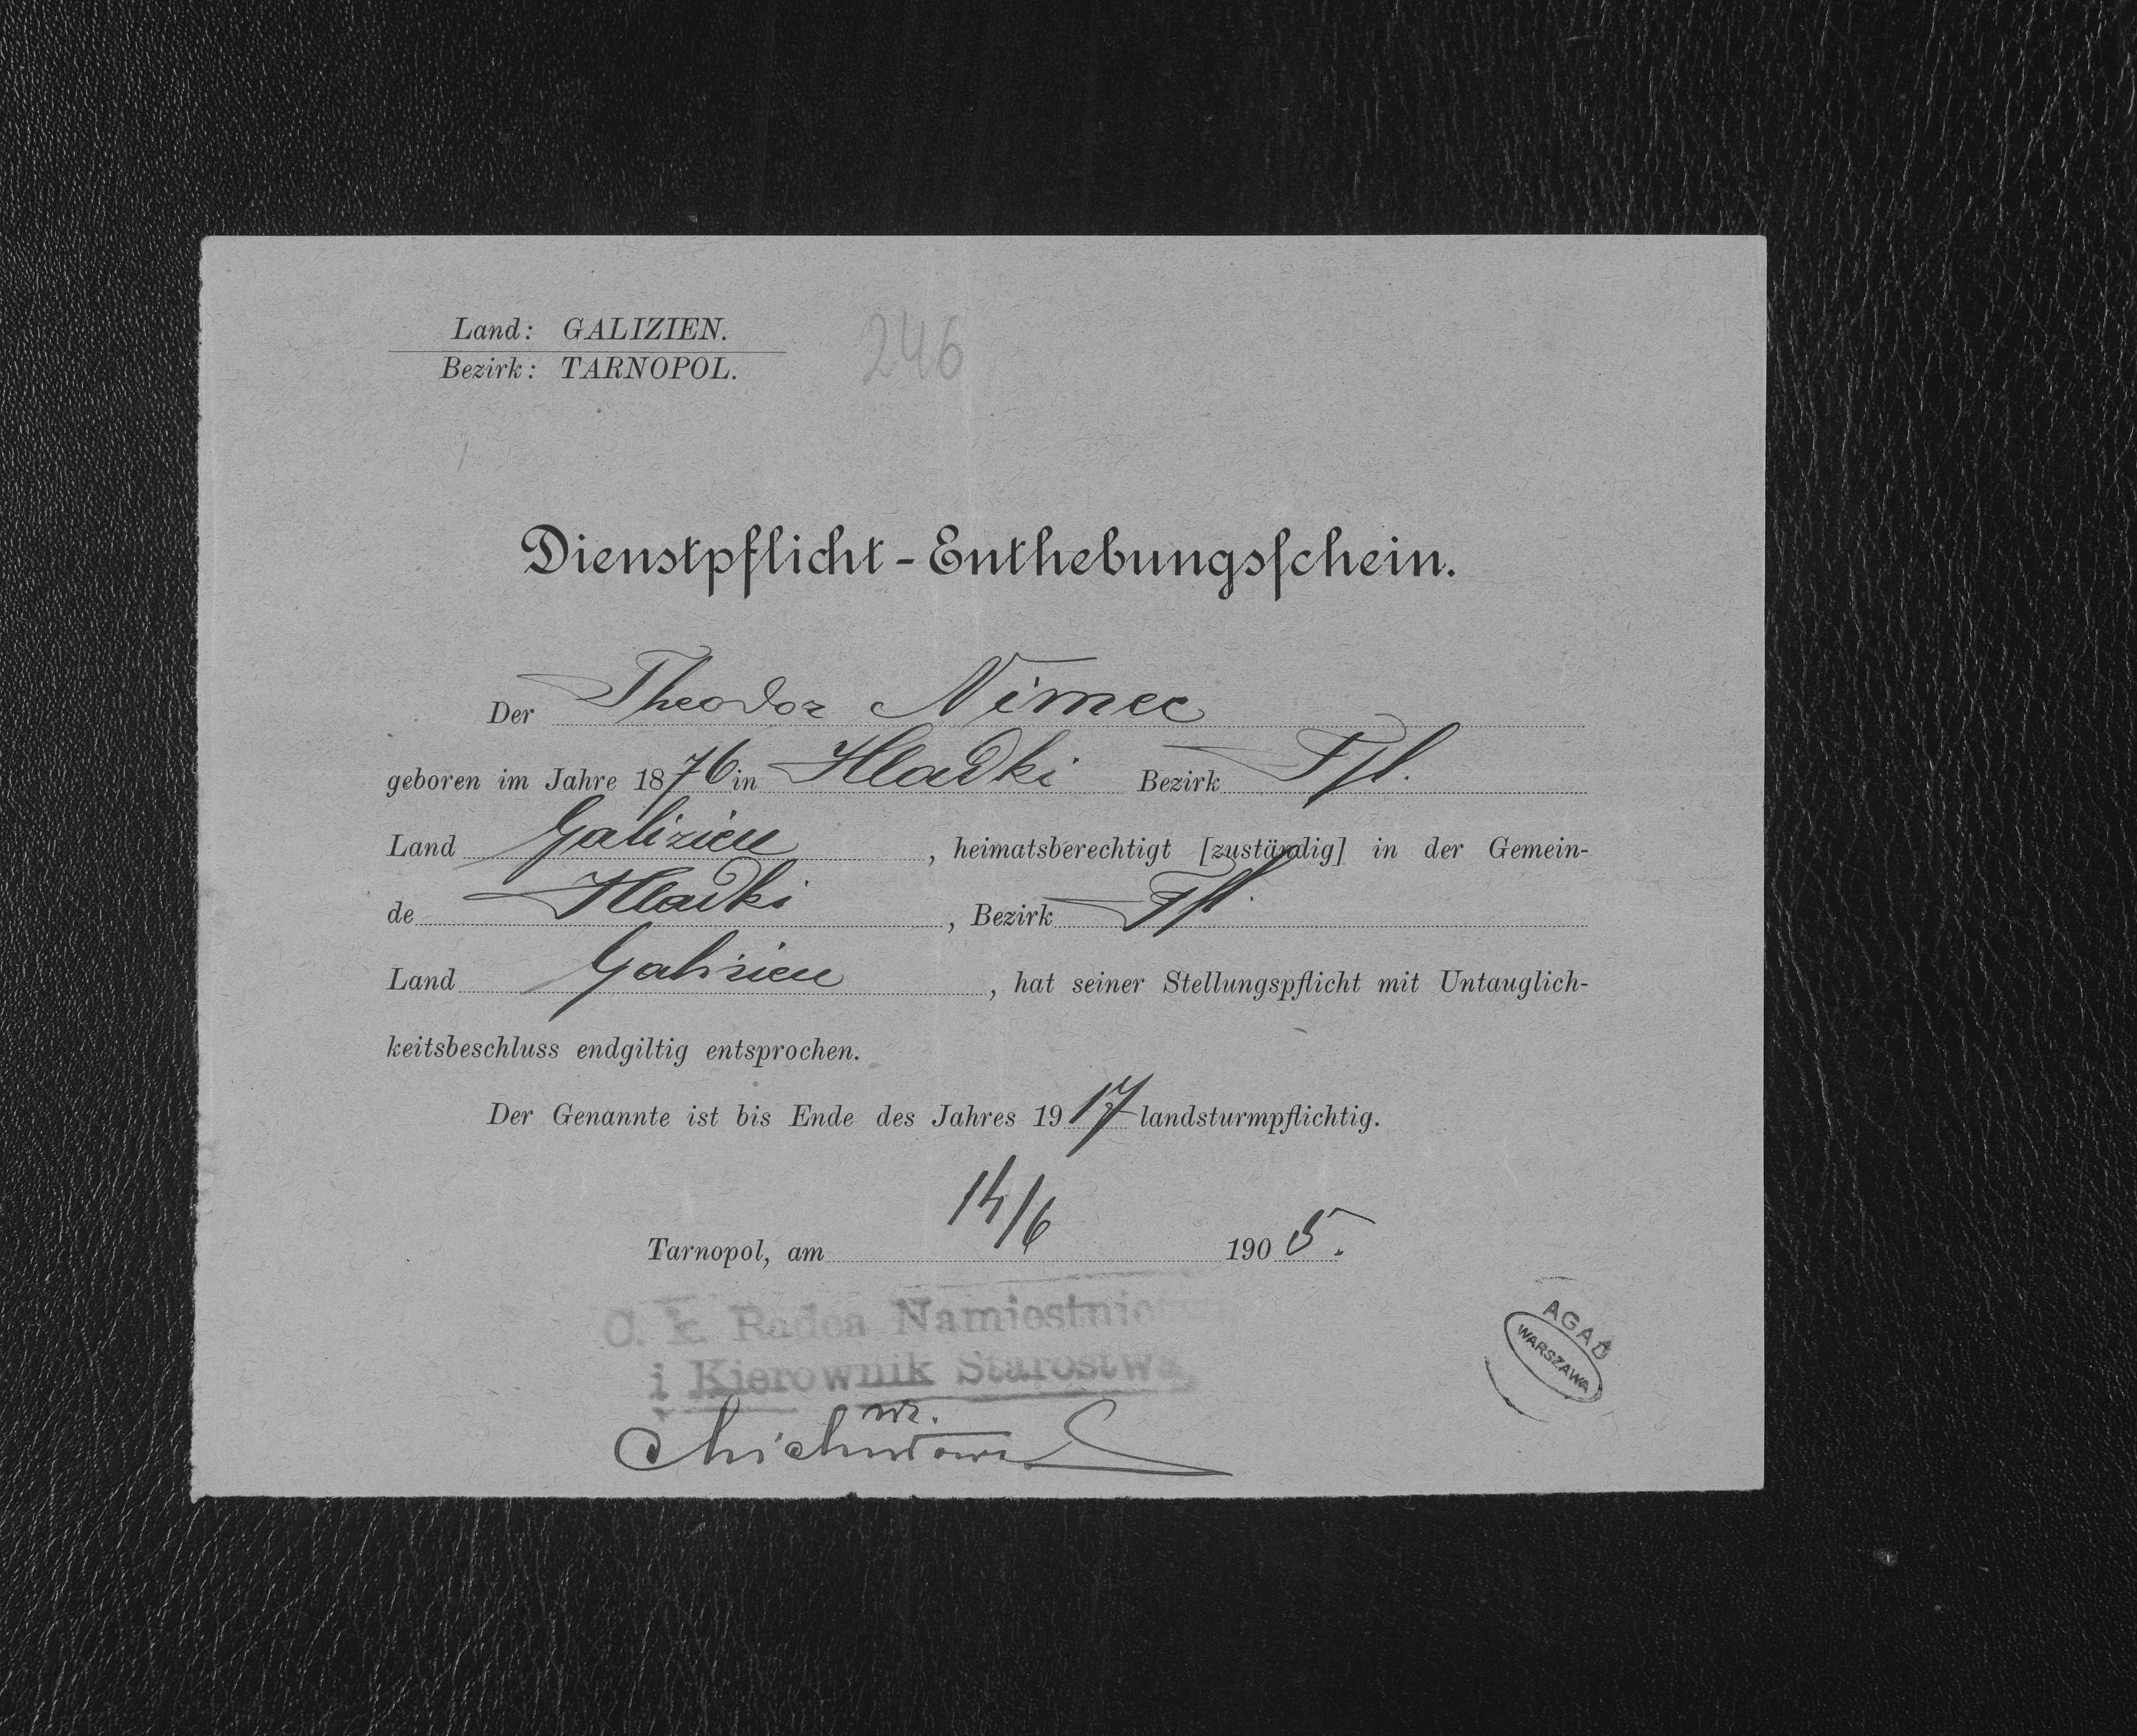 Land: GALIZIEN.
246
Bezirk: TARNOPOL.
Dienstpflicht-Enthebungsschein.
Der Theodor Nimec
geboren im Jahre 1876 in Hladki Bezirk Tpl.
Land Galizien, heimatsberechtigt [zuständig] in der Gemein-
de Hladki, Bezirk Tpl.
Land Galizien, hat seiner Stellungspflicht mit Untauglich-
keitsbeschluss endgiltig entsprochen.
Der Genannte ist bis Ende des Jahres 1917 landsturmpflichtig.
14/6
Tarnopol, am 1905.
C. k. Radca
i Kierownik Starostwa,
AGAD
WARSZAWA